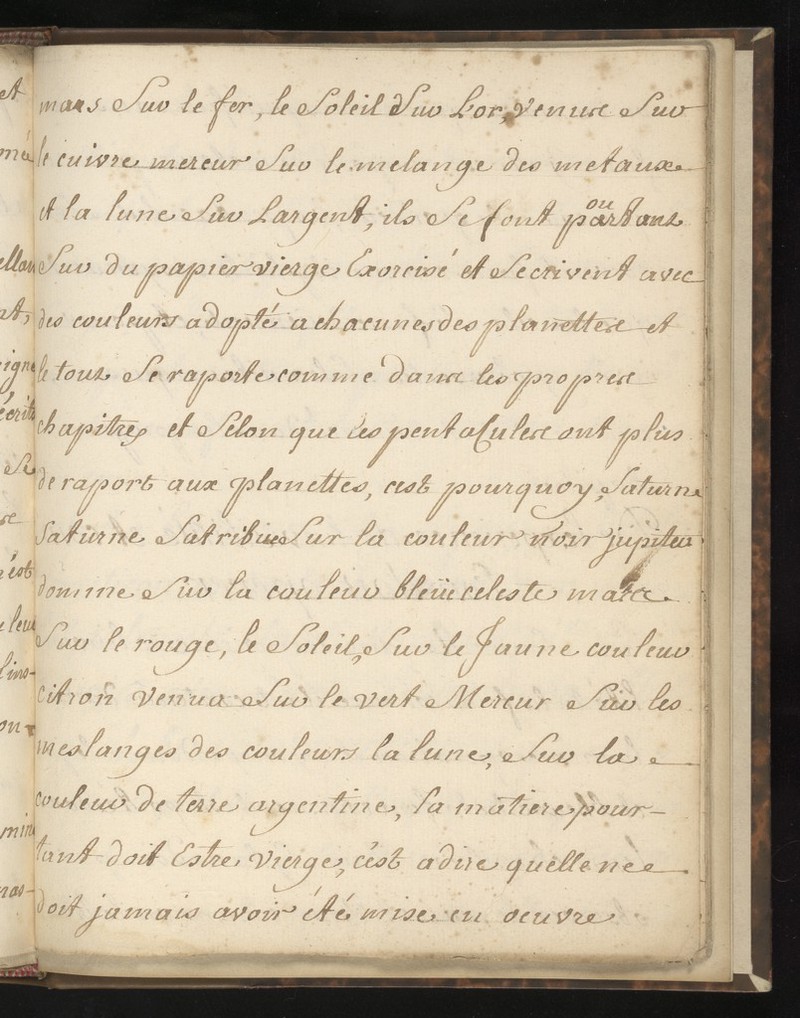 et
mars Sur le fer, le Soleil Sur L'or, venus Sur
le cuivre mercur Sur le melange des metaux
et la lune Sur Largent, ils Se font ou partant
Sur du papier vierge Exorcisé et Secrivent avec
des couleurs adopté a chacunes des planettes et
le tout Se raporte comme dans les propres
chapitres et Selon que les pentacules ont plus
de raport aux planettes, cest pourquoy, Saturne
Saturne Satribue Sur la couleur noir jupiter
domine Sur la couleur bleüe celeste mars
Sur le rouge, le Soleil, Sur le Jaune couleur
citron venus Sur le vert Mercur Sur les
meslanges des couleurs la lune, Sur la
couleur de terre argentine, la matiere pour-
tant doit Estre vierge, c'est adire quelle ne
doit jamais avoir été mise en oeuvre